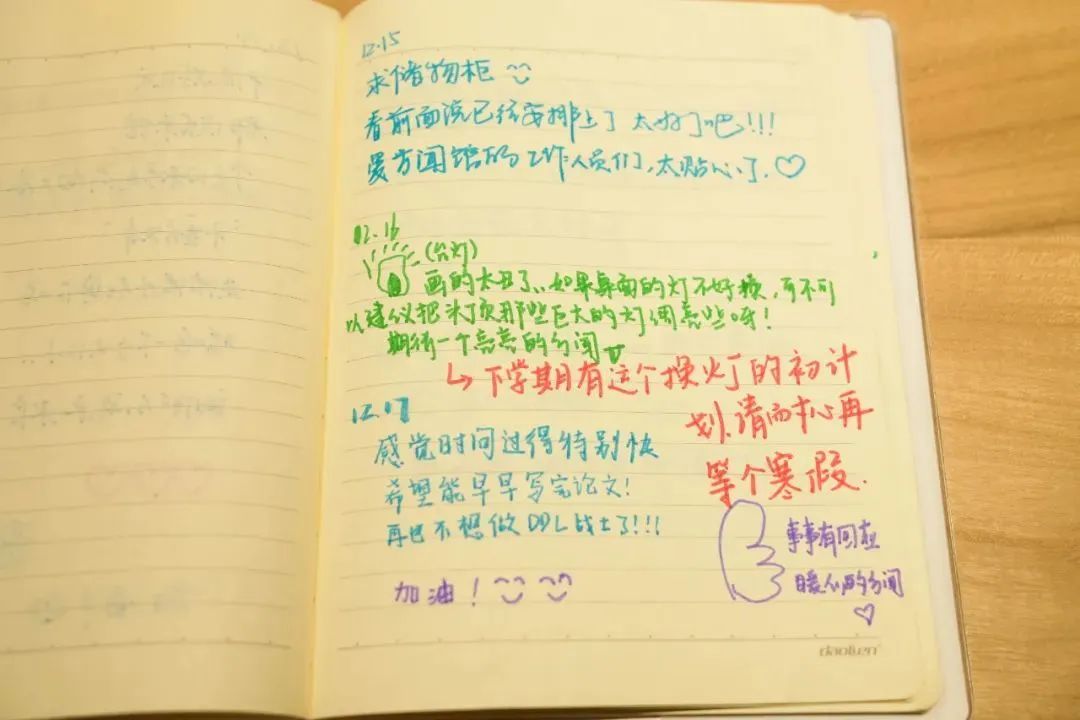 12.15
求储物柜
看前面说已经安排上了 太好了吧!!!
爱方闻馆的工作人员们,太贴心了.♡
12.16
(台灯)
画的太丑了、如果桌面的灯不好换,可不可
以建议把头顶那些巨大的灯调亮些呀!
期待一个亮亮的方闻
↳下学期有这个换灯的初计
划,请耐心再
等个寒假.
12.17
感觉时间过得特别快
希望能早早写完论文!
再也不想做DDL战士了!!!
加油!
事事有回应
暖人的方闻
♡